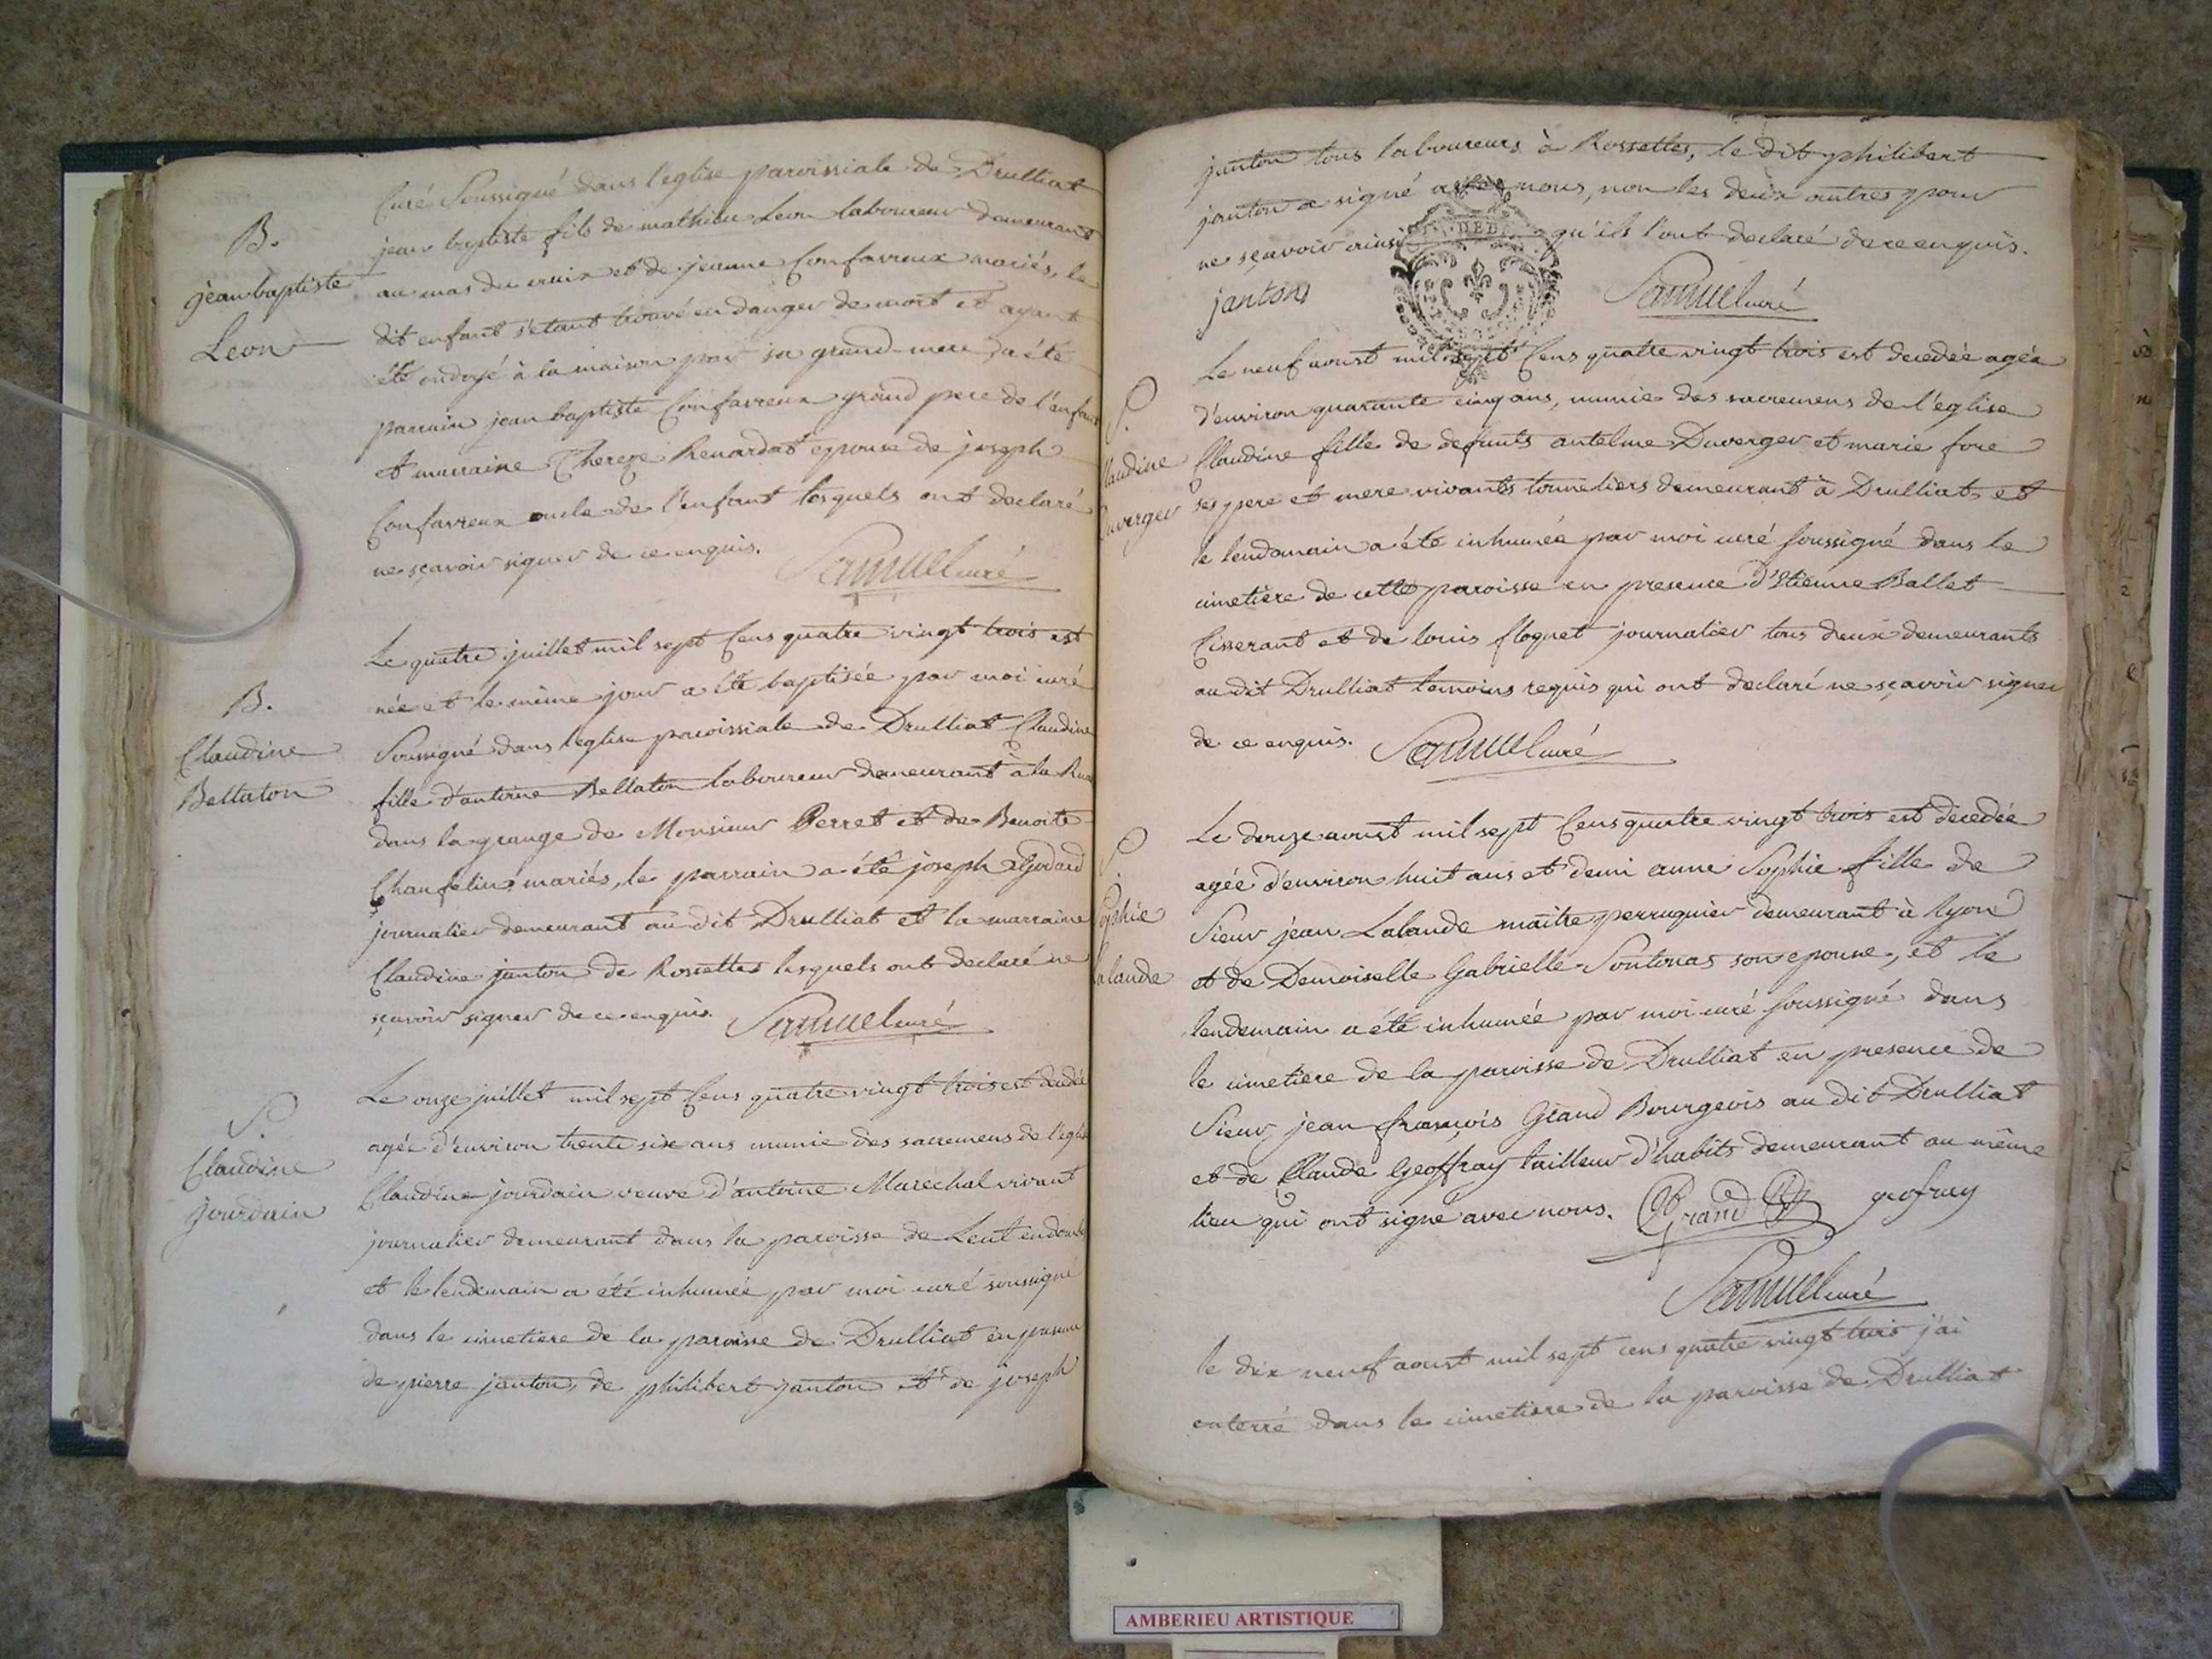 Curé Soussigné dans l'eglise paroissiale de Drulliat
B.
jean baptiste
Leon
jean baptiste fils de mathieu Leon laboureur demeurant
au mas du croix et de jeanne Confavreux mariés, le
dit enfant s'etant trouvé en danger de mort et ayant
été ondoyé à la maison par sa grand-mere, a été
parrain jean baptiste Confavreux grand pere de l'enfant
et marraine Thereze Renardat epouse de joseph
Confavreux oncle de l'enfant lesquels ont declaré
ne sçavoir signer de ce enquis.
Samuel curé
Le quatre juillet mil sept Cens quatre vingt trois est
B.
Claudine
Bellaton
née et le même jour a été baptisée par moi curé
Soussigné dans l'eglise paroissiale de Drulliat Claudine
fille d'antoine Bellaton laboureur demeurant à la Rua
dans la grange de Monsieur Perret et de Benoite
Chanfelin, mariés, le parrain a été joseph Godard
journalier demeurant au dit Drulliat et la marraine
Claudine janton de Rossettes lesquels ont declaré ne
sçavoir signer de ce enquis.
Samuel curé
Le onze juillet mil sept Cens quatre vingt trois est decedée
S.
Claudine
jourdain
agée d'environ trente six ans munie des sacremens de l'eglise
Claudine jourdain veuve d'antoine Maréchal vivant
journalier demeurant dans la paroisse de Lent en dombe
et le lendemain a été inhumée par moi curé soussigné
dans le cimetiere de la paroisse de Drulliat en presence
de pierre janton, de philibert janton et de joseph
janton tous laboureurs à Rossettes, le dit philibert
janton a signé avec nous, non les deux autres pour
ne sçavoir ainsi qu'ils l'ont declaré de ce enquis.
janton
Samuel curé
Le neuf aoust mil sept Cens quatre vingt trois est decedée agée
S.
Claudine
Duverger
d'environ quarante cinq ans, munie des sacremens de l'eglise
Claudine fille de defunts antelme Duverger et marie fore
ses pere et mere vivants tonneliers demeurant à Drulliat, et
le lendemain a été inhumée par moi curé Soussigné dans le
cimetiere de cette paroisse en presence d'Etienne Ballet
tisserant et de louis floquet journalier tous deux demeurants
au dit Drulliat temoins requis qui ont declaré ne sçavoir signer
de ce enquis.
Samuel curé
Le douze aoust mil sept Cens quatre vingt trois est décedée
S.
Sophie
Lalande
agée d'environ huit ans et demi anne Sophie fille de
Sieur jean Lalande maître perruquier demeurant à Lyon
et de Demoiselle Gabrielle Sontonas son epouse, et le
lendemain a été inhumée par moi curé Soussigné dans
le cimetiere de la paroisse de Drulliat en presence de
Sieur jean françois Grand Bourgeois au dit Drulliat
et de Claude Geoffray tailleur d'habits demeurant au même
lieu qui ont signé avec nous.
Grand
geofray
Samuel curé
le dix neuf aoust mil sept cens quatre vingt trois j'ai
enterré dans le cimetiere de la paroisse de Drulliat
AMBERIEU ARTISTIQUE